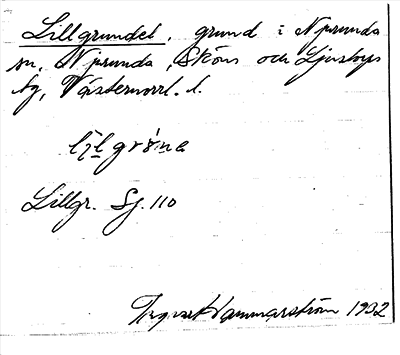 Lillgrundet, grund i Njurunda
sn, Njurunda, Sköns och Ljustorps
tg, Västernorrl. l.
Lillgr. Sj. 110
Ingvar Hammarström 1932